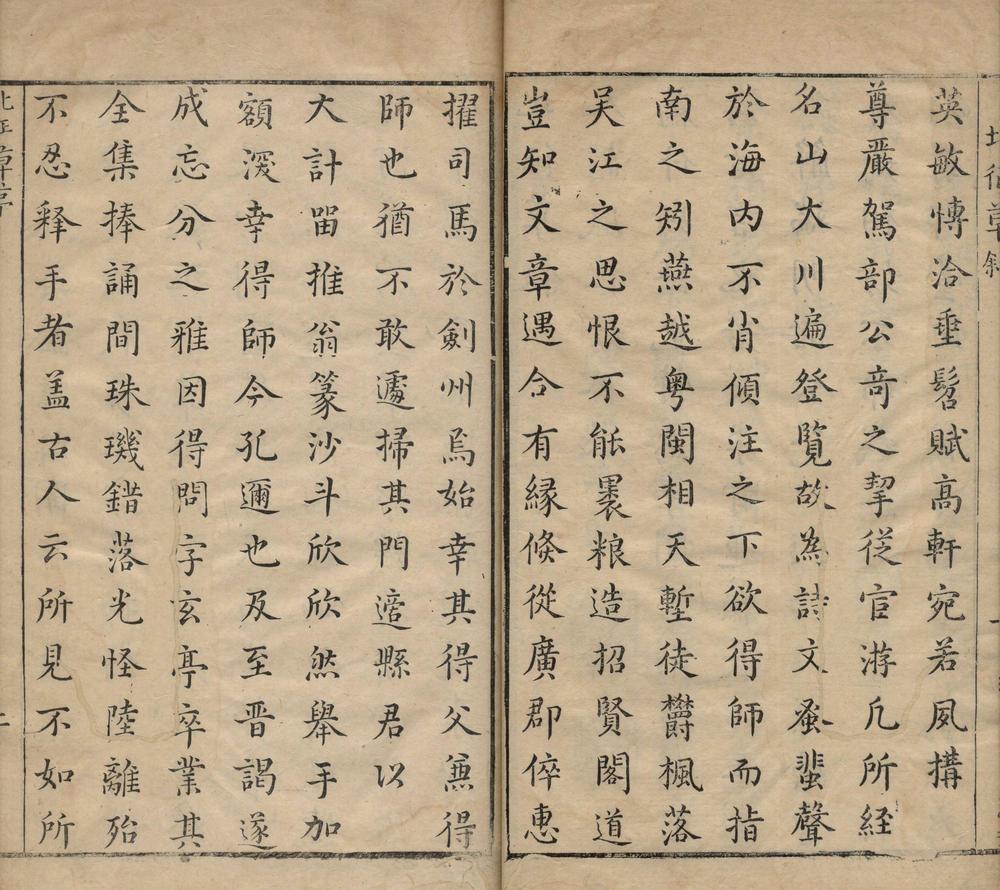 英敏愽洽垂髫賦高軒宛若夙搆
尊嚴駕部公竒之挈従官游凡所経
名山大川遍登覧故為詩文蚤蜚聲
於海内不肖傾注之下欲得師而指
南之矧燕越粤閩相天塹徒欝楓落
吴江之思恨不能褁粮造招賢閣道
豈知文章遇合有縁倏從廣郡倅惠
擢司馬於劍州烏始幸其得父兼得
師也猶不敢遽掃其門適縣君以
大計畱推翁篆沙斗欣欣然舉手加
額深幸得師今孔邇也及至晋謁遂
成忘分之雅因得問字玄亭卒業其
全集捧誦間珠璣錯落光怪陸離殆
不忍释手者盖古人云所見不如所